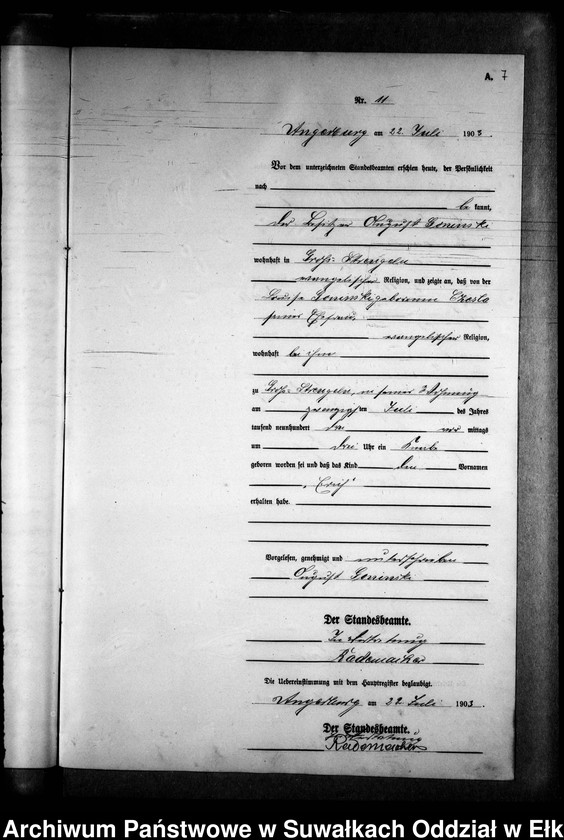 A. 7
Nr. 11
Angerburg am 22 Juli 1903.
Vor dem unterzeichneten Standesbeamten erschien heute, der Persönlichkeit
nach
be kannt,
der Besitzer August
wohnhaft in Groß Strengeln
evangelischer Religion, und zeigte an, daß von der
Louise geborenen
seiner Ehefrau
evangelischer Religion,
wohnhaft bei ihm
zu Groß Strengeln, in seiner Wohnung
am zwanzigsten Juli des Jahres
tausend neunhundert drei vor mittags
um drei Uhr ein Knabe
geboren worden sei und daß das Kind den Vornamen
„Erich“
erhalten habe.
Vorgelesen, genehmigt und unterschrieben
August
Der Standesbeamte.
In Vertretung
Rademacher
Die Uebereinstimmung mit dem Hauptregister beglaubigt.
Angerburg am 22 Juli 1903.
Der Standesbeamte.
In Vertretung
Rademacher
Archiwum Państwowe w Suwałkach Oddział w Ełk